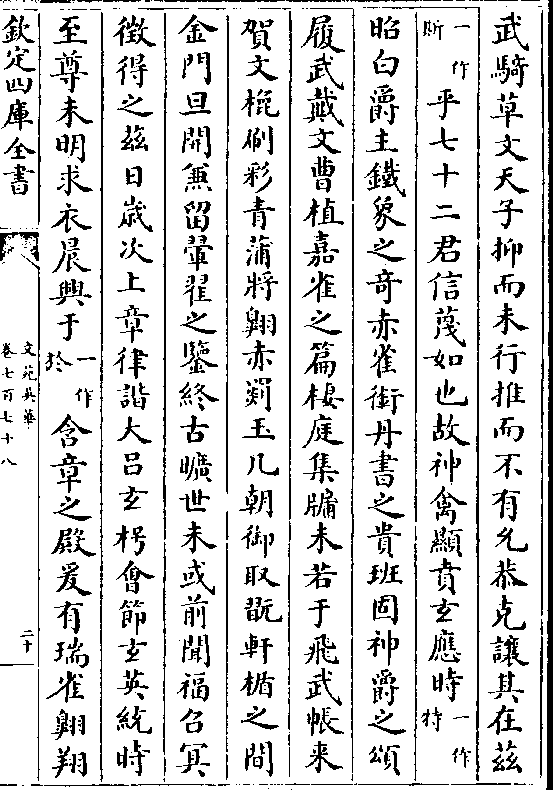 武騎草文天子抑而未行推而不有允恭克讓其在茲
一作斯乎七十二君信蔑如也故神禽顯賁玄應時一作特
昭白爵主鐵象之奇赤雀銜丹書之貴班固神爵之頌
履武戴文曹植嘉雀之篇棲庭集牖未若于飛武帳来
賀文棍刷彩青蒲將翺赤罽玉几朝御取翫軒楯之間
金門旦開兼留翬翟之鑒終古曠世未或前聞福召冥
徵得之茲日歲次上章律諧大吕玄枵會節玄英統時
至尊未明求衣晨興于一作於含章之殿爰有瑞雀翺翔
欽定四庫全書
文苑英華
卷七百七十八
二十